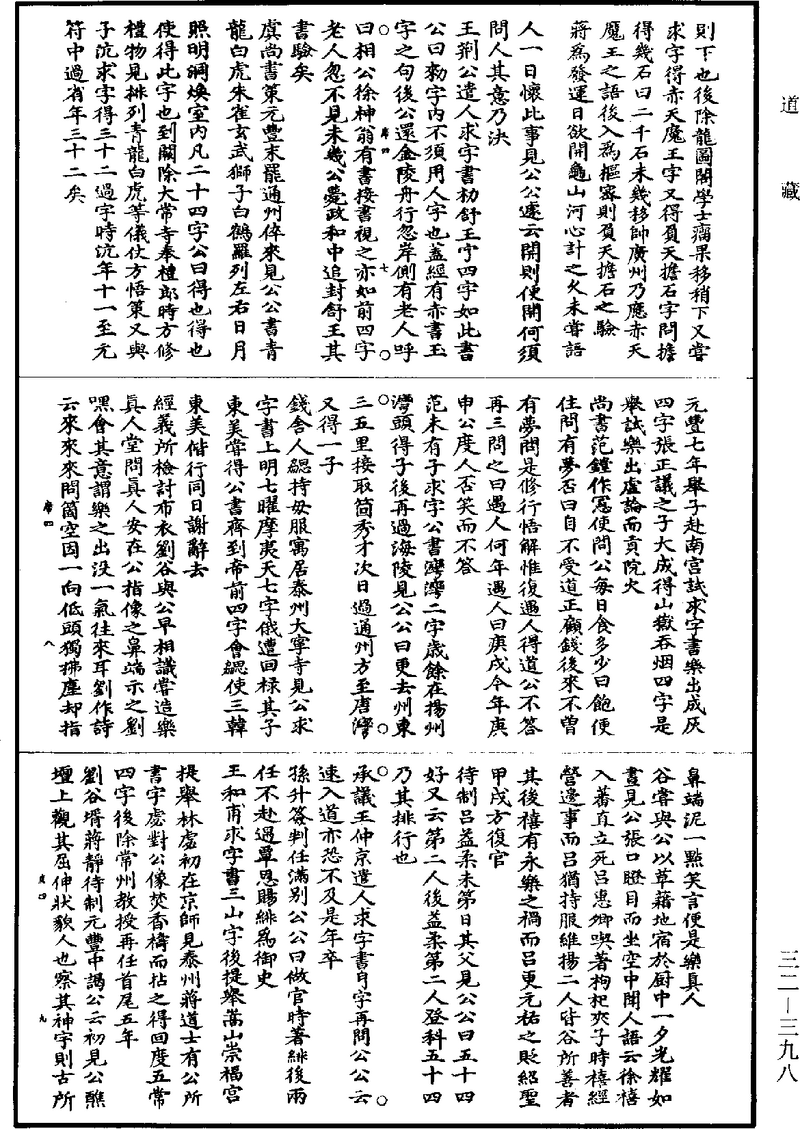 道藏
則下也後除龍圖閣學士瘤果移稍下又嘗
求字得赤天魔王字又得負天擔石字問擔
得幾石曰二千石未幾移帥廣州乃應赤天
魔王之語後入為樞密則負天擔石之驗
蔣為發運日欲開龜山河心計之久未嘗語
人一日懷此事見公公遽云開則便開何須
問人其意乃決
王荆公遣人求字書勑舒王字四字如此書
公曰勑字內不須用人字也蓋經有赤書玉
字之句後公還金陵舟行忽岸側有老人呼
曰相公徐神翁有書接書視之亦如前四字
老人忽不見未幾公薨政和中追封舒王其
書驗矣
虞尚書策元豐末罷通州倅來見公公書青
龍白虎朱雀玄武獅子白鶴羅列左右日月
照明洞煥室內凡二十四字公曰得也得也
使得此字也到闕除大常寺奉禮郎時方修
禮物見排列青龍白虎等儀仗方悟策又與
子沆求字得三十二過字時沆年十一至元
符中過省年三十二矣
元豐七年舉子赴南宮試求字書樂出成灰
四字張正議之子大成得山嶽吞烟四字是
舉試樂出虛論而貢院火
尚書范鏜作憲使問公每日食多少曰飽便
住問有夢否曰自不受道正顧錢後來不曾
有夢問是修行悟解惟復遇人得道公不答
再三問之曰遇人何年遇人曰庚戌今年庚
申公度人否笑而不答
范未有子求字公書灣灣二字歲餘在揚州
灣頭得子後再過海陵見公公曰更去州東
三五里接取箇秀才次日過通州方至唐灣
又得一子
錢舍人勰持母服寓居泰州大寧寺見公求
字書上明七曜摩夷天七字俄遭回祿其子
東美嘗得公書齊到帝前四字會勰使三韓
東美偕行同日謝辭去
經義所檢討布衣劉谷與公早相識嘗造樂
真人堂問真人安在公指像之鼻端示之劉
嘿會其意謂樂之出没一氣往來耳劉作詩
云來來來問箇空因一向低頭獨拂塵却指
鼻端泥一點笑言便是樂真人
谷嘗與公以草藉地宿於厨中一夕光耀如
晝見公張口瞪目而坐空中聞人語云徐禧
入蕃直立死吕惠卿喫著枸杞夾子時禧經
營邊事而吕猶持服維揚二人皆谷所善者
其後禧有永樂之禍而吕更元祐之貶紹聖
甲戌方復官
待制吕益柔未第日其父見公公曰五十四
好又云第二人後益柔第二人登科五十四
乃其排行也
承議王仲京遣人求字書身字再問公公云
速入道亦恐不及是年卒
孫升簽判任滿别公公曰做官時著緋後兩
任不赴遇覃恩賜緋為御史
王和甫求字書三山字後提舉嵩山崇福宮
提舉林虙初在京師見泰州蔣道士有公所
書字虙對公像焚香禱而拈之得回度五常
四字後除常州教授再任首尾五年
劉谷壻蔣靜待制元豐中謁公云初見公醮
壇上觀其屈伸狀貌人也察其神宇則古所
三二—三九八